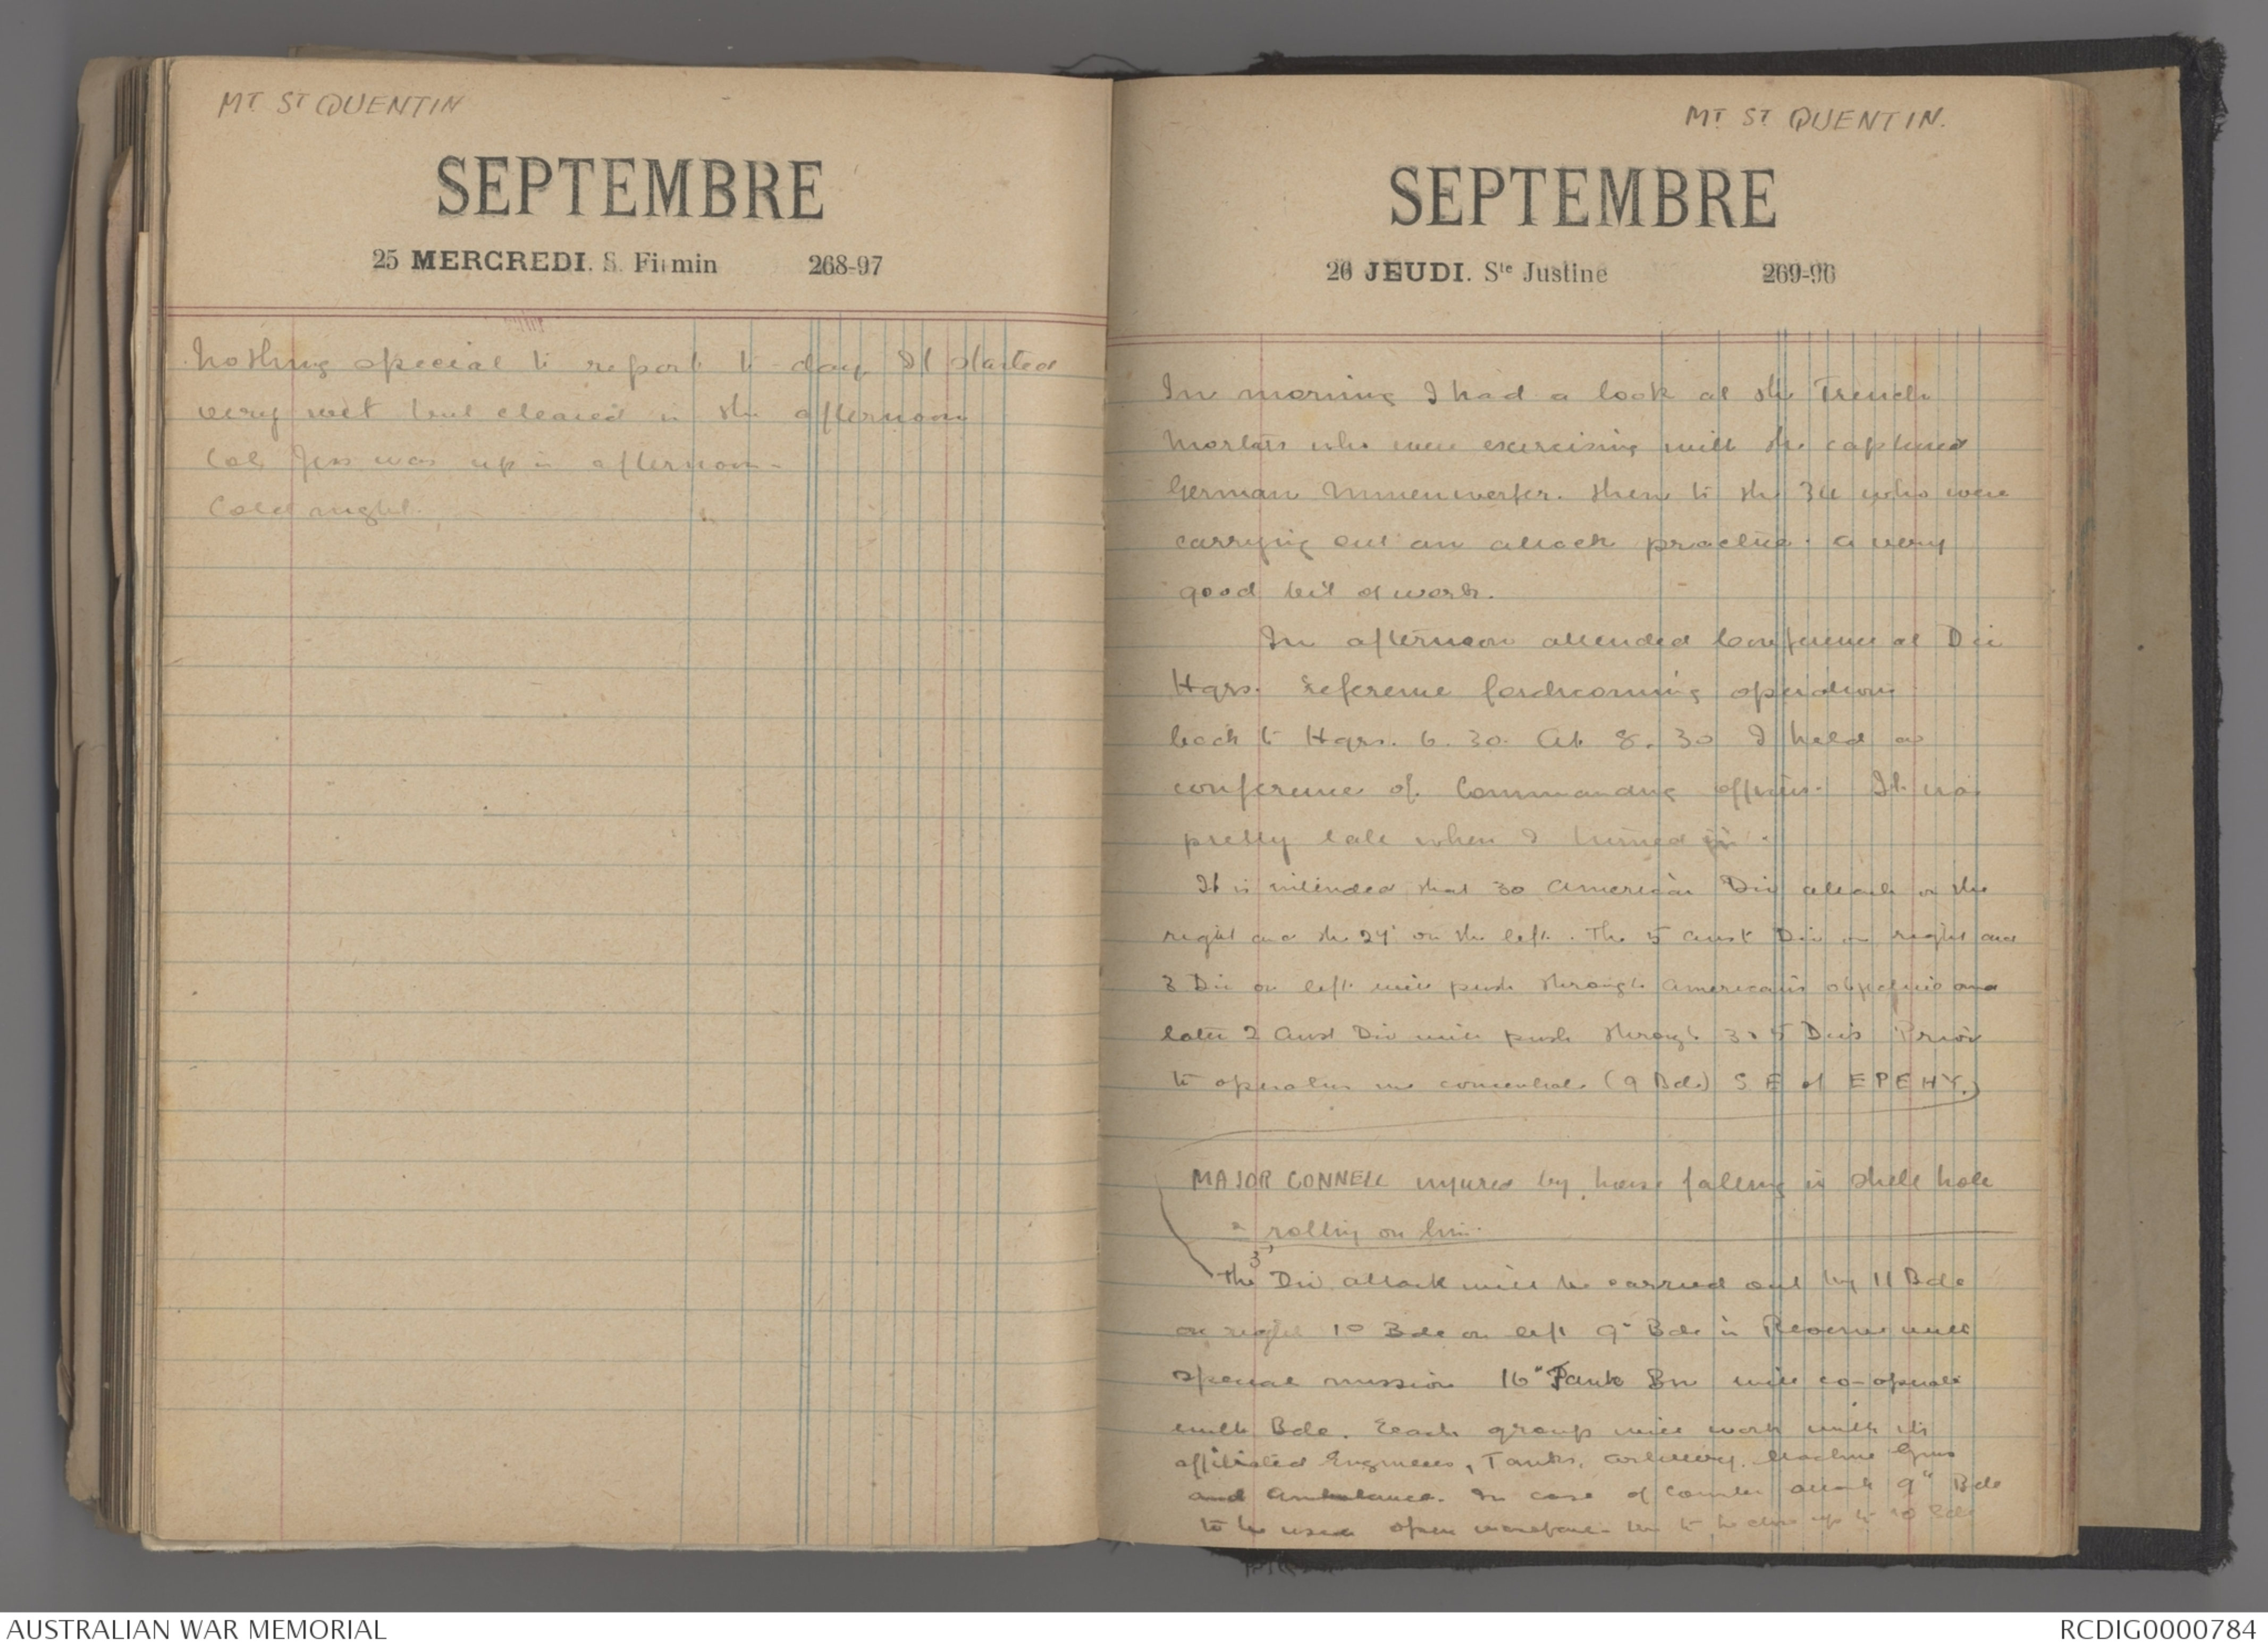 MT ST QUENTIN
SEPTEMBRE
25 MERCREDI. S. Firmin 268-97
Nothing special to report to-day. It started
very wet but cleared in the afternoon
Col Jess was up in afternoon.
Cold night.
MT ST QUENTIN.
SEPTEMBRE
26 JEUDI. Ste Justine 269-96
In morning I had a look at the Trench
Mortars who were exercising with the captured
German Minenwerfer. then to the 34 who were
carrying out an attack practice. a very
good bit of work.
In afternoon attended Conference at Div
Hqrs. reference forthcoming operations
back to Hqrs. 6.30. At 8.30 I held a
conference of Commanding officers. It was
pretty late when I turned in.
It is intended that 30 American Div attack on the
right and the 27' on the left. The 5 Aust Div on right and
3 Div on left will push through Americans objective and
later 2 Aust Div will push through 3 & 5 Divs Prior
to operation we concentrate (9 Bde) S E of EPEHY.)
MAJOR CONNELL injured by horse falling in shell hole
& rolling on him.
The 3' Div attack will be carried out by 11 Bde
on right 10 Bde on left 9" Bde in Reserve with
special mission 16" Tank Bn will co-operate
with Bde. Each group will work with its
affiliated Engineers, Tanks, Artillery, Machine Guns
and Ambulance. In case of counter attack 9" Bde
to be used open warfare to be close up to 10 Bde